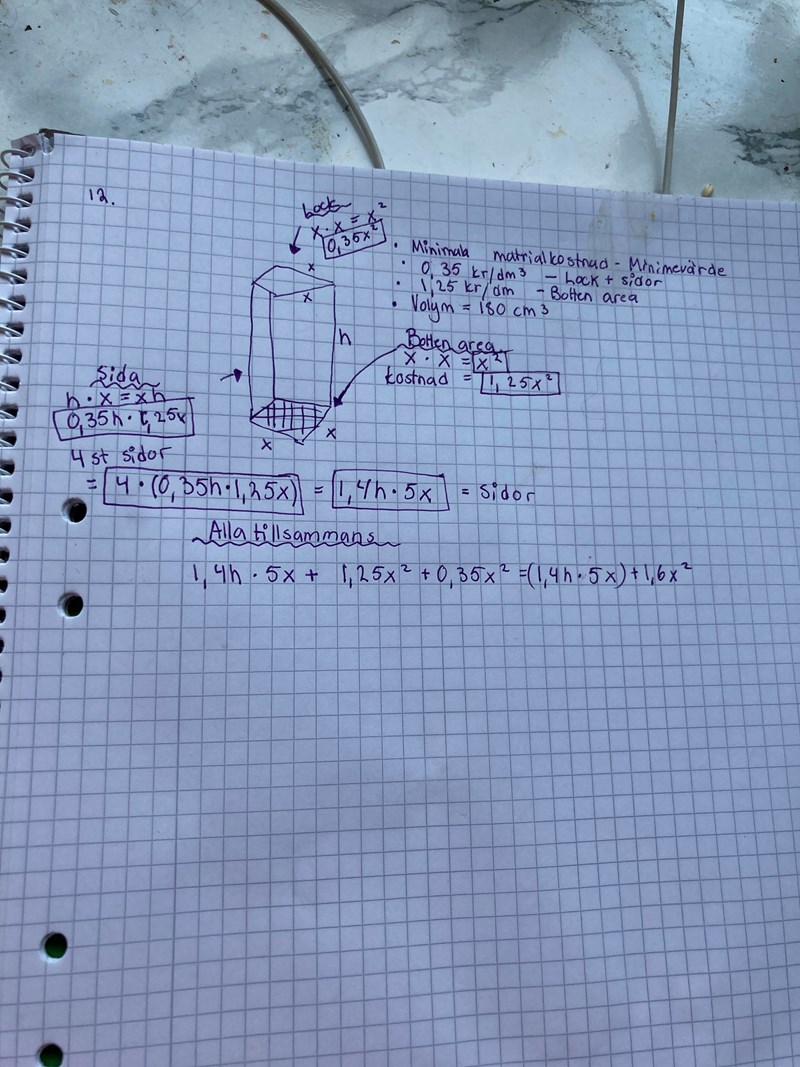 12.
Lock
x · x = x²
0,35x²
x
x
h
• Minimala matrialkostnad - Minimevärde
• 0,35 kr/dm³ — Lock + sidor
• 1,25 kr/dm — Botten area
• Volym = 180 cm³
Botten area
x · x = x²
kostnad = 1,25x²
Sida
h · x = xh
0,35h · 1,25x
x
x
4 st sidor
= 4 · (0,35h · 1,25x) = 1,4h · 5x = sidor
Alla tillsammans
1,4h · 5x + 1,25x² + 0,35x² = (1,4h · 5x) + 1,6x²